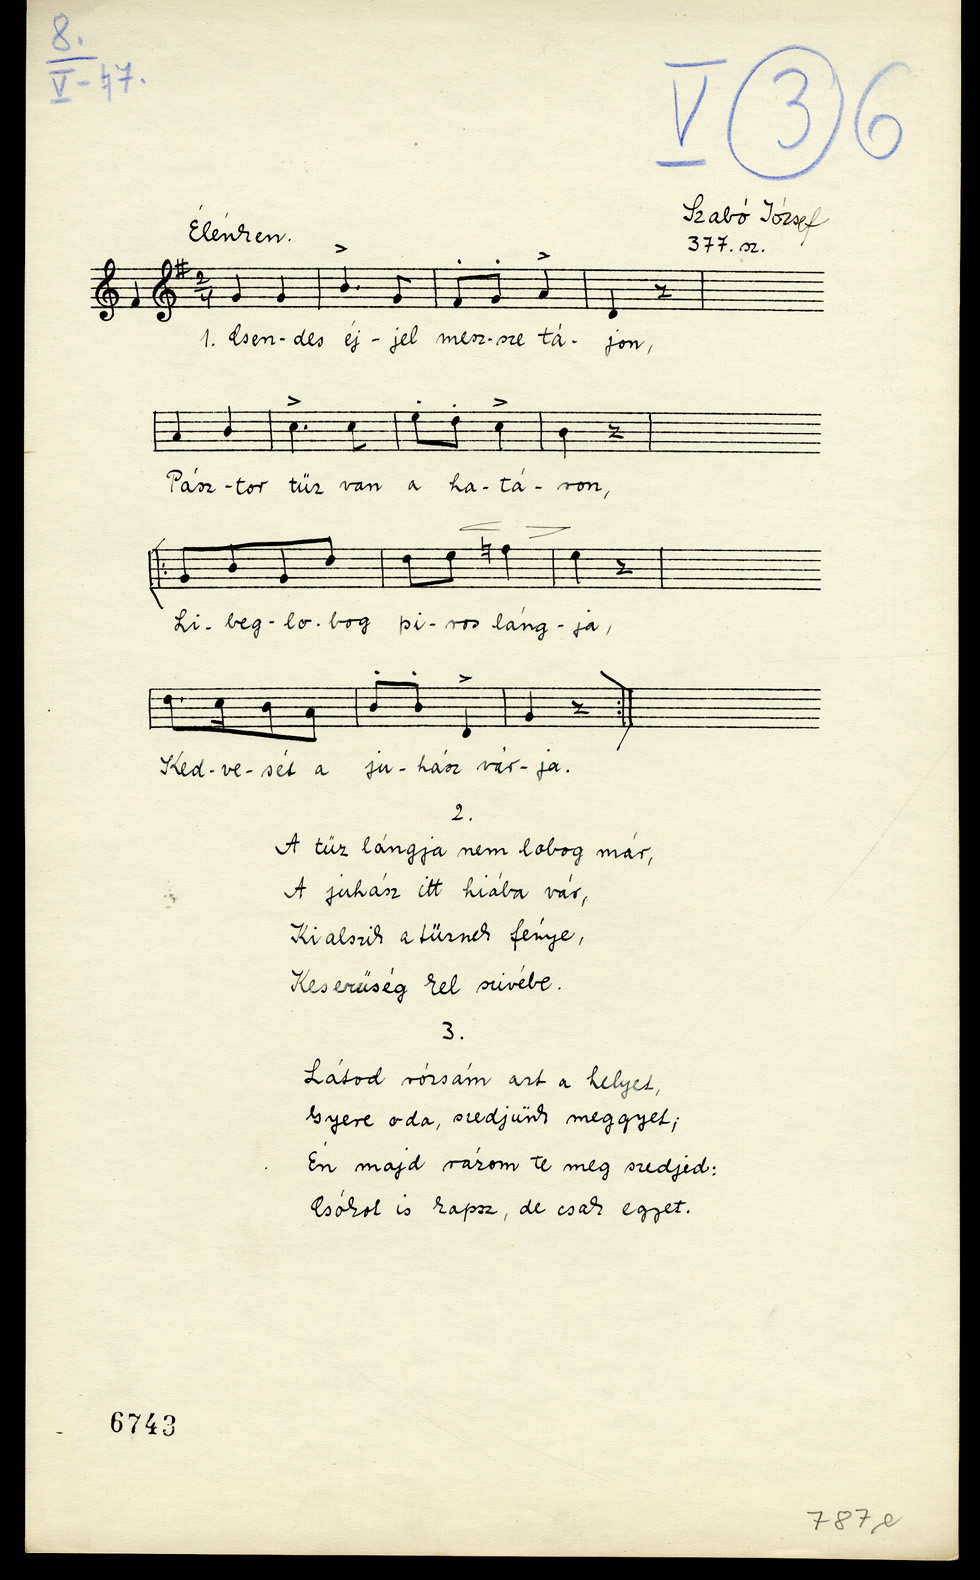 8.
V-47.
V 3 6
Szabó József
377. sz.
Élénken.
2/4
1. Csen-des éj-jel mesz-sze tá-jon,
Pász-tor tüz van a ha-tá-ron,
Li-beg-lo-bog pi-ros láng-ja,
Ked-ve-sét a ju-hász vár-ja.
2.
A tüz lángja nem lobog már,
A juhász itt hiába vár,
Kialszik a tüznek fénye,
Keserüség kel szivébe.
3.
Látod rózsám azt a helyet,
Gyere oda, szedjünk meggyet;
Én majd rázom te meg szedjed:
Csókot is kapsz, de csak egyet.
6743
787e